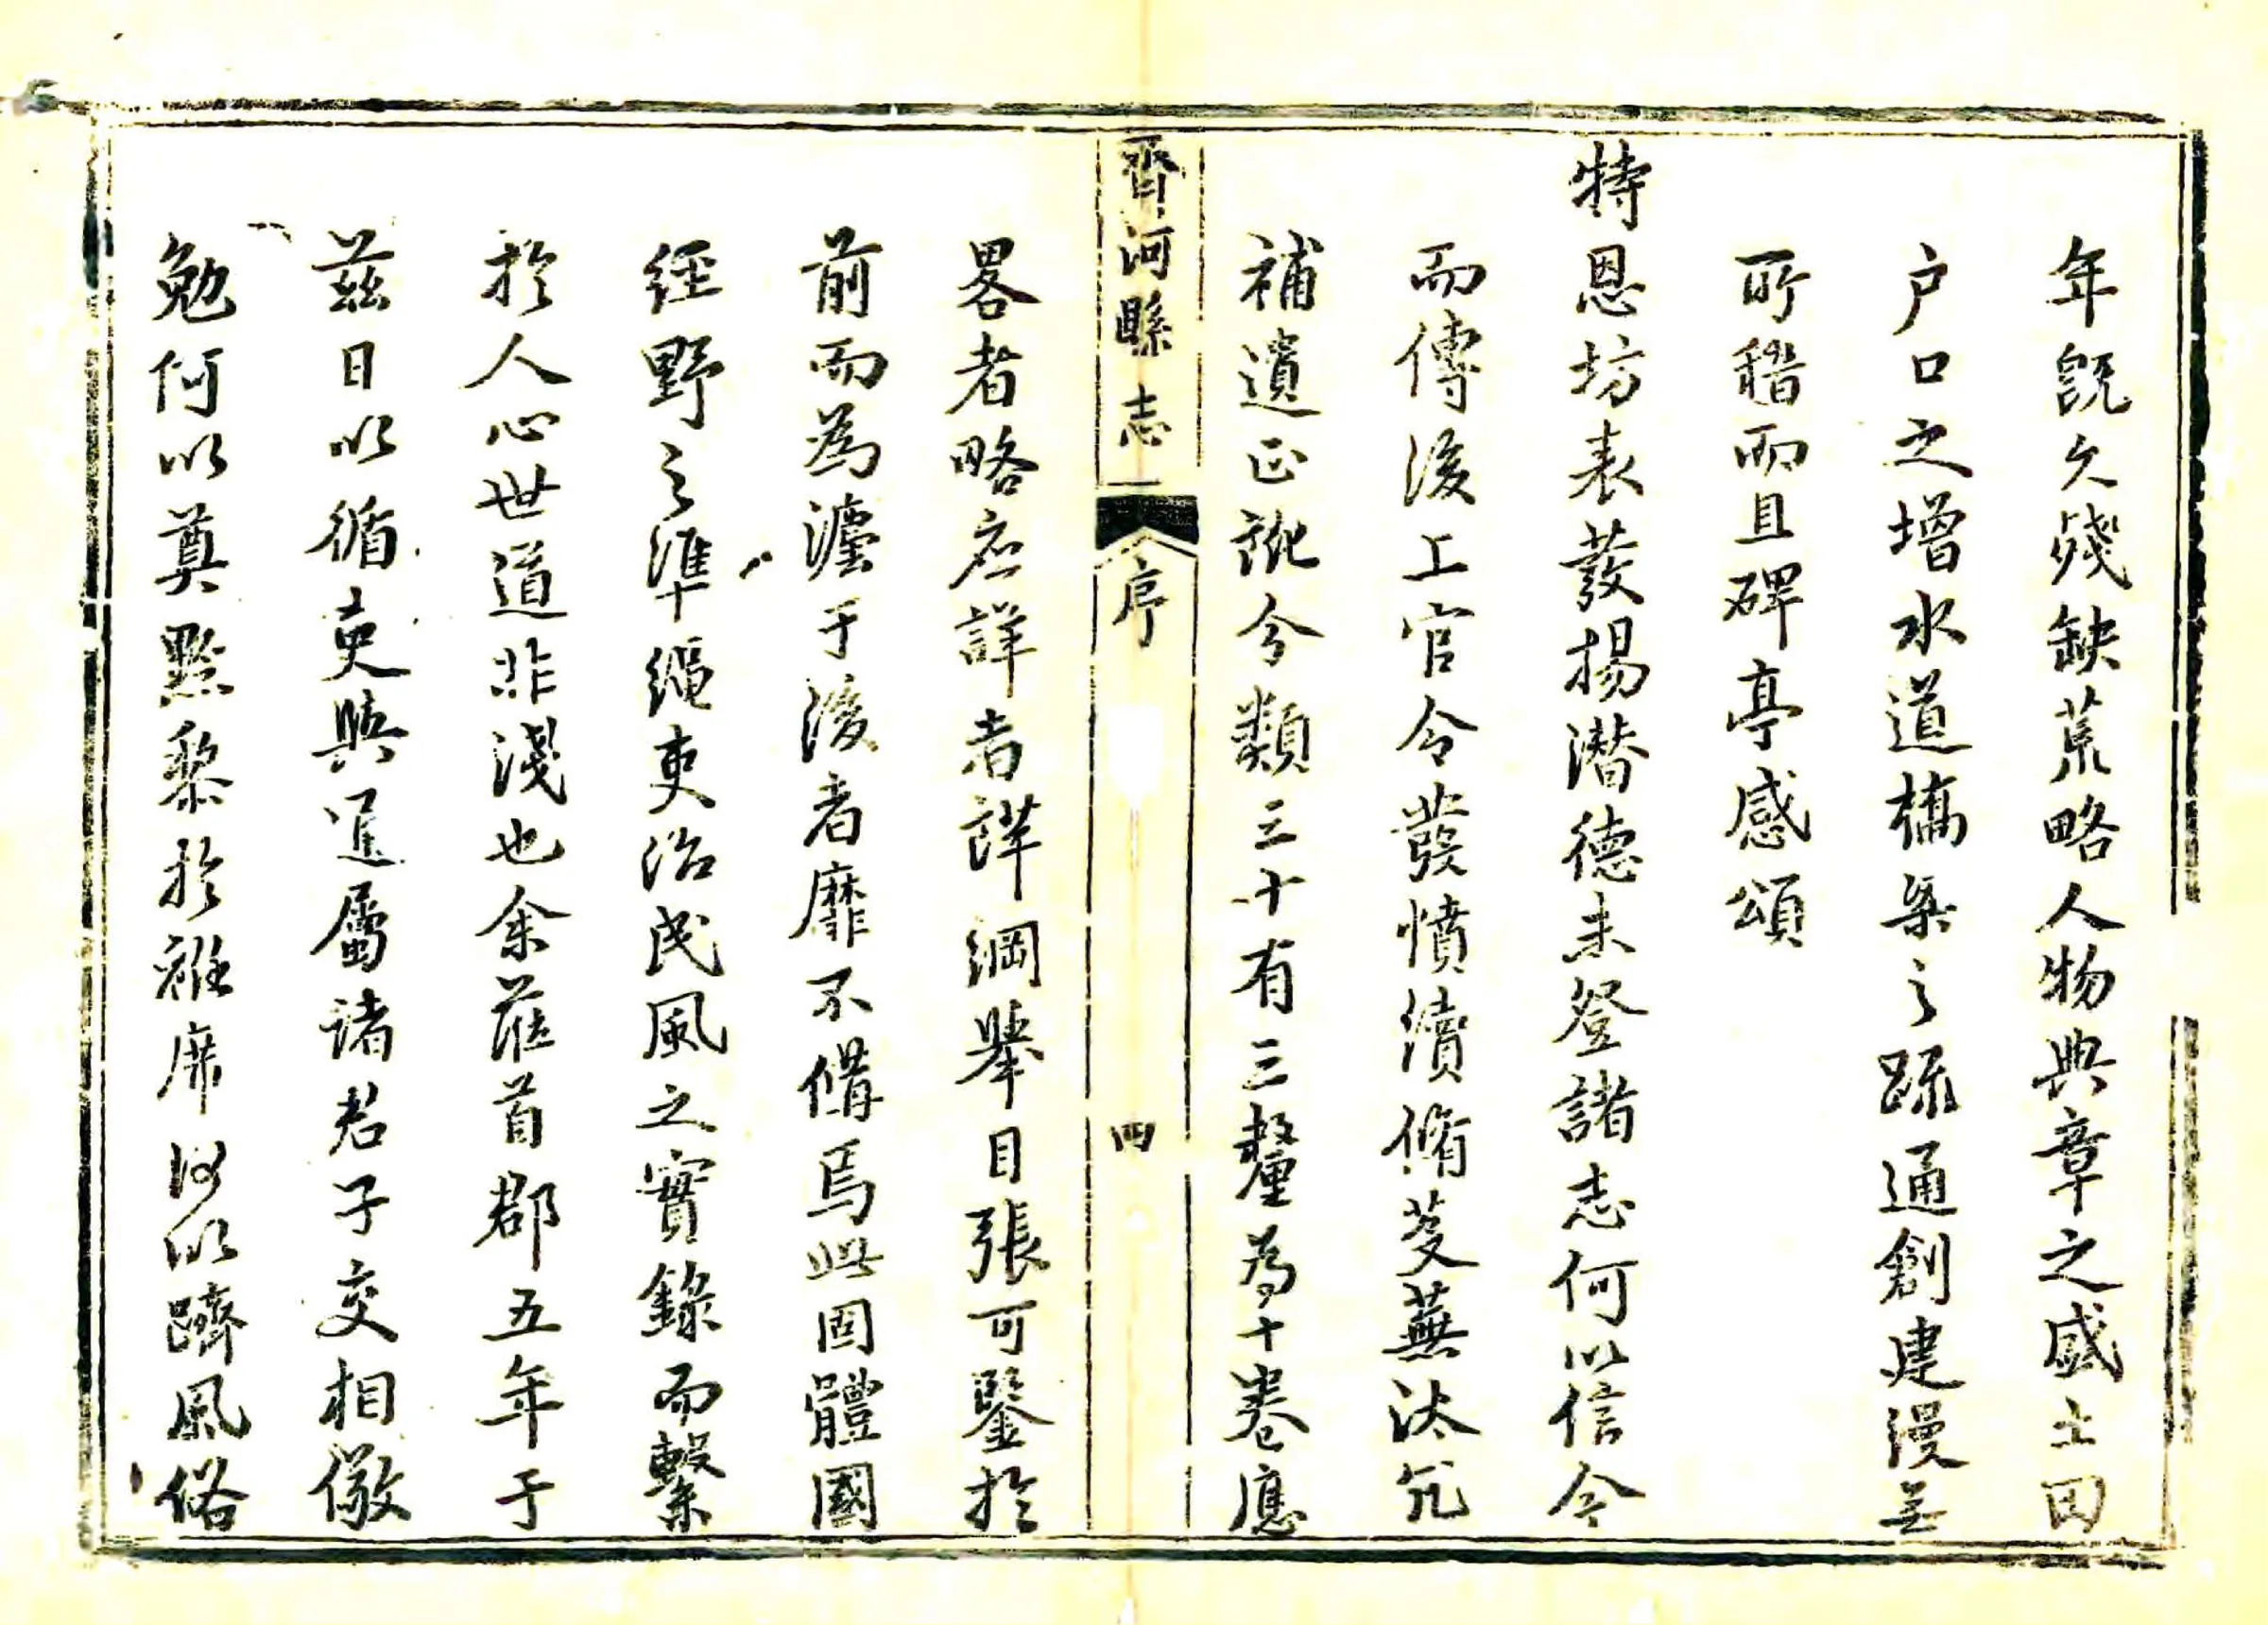 年既久殘缺荒略人物典章之盛土田
户口之增水道橋梁之疏通創建漫无
所稽而且碑亭感頌
特恩坊表發揚潛德未登諸志何以信今
而傳後工官令發憤續脩芟蕪汰冗
補遺正訛分類三十有三釐為十卷應
齊河縣志
序
四
畧者略应詳者詳綱舉目張可鑒於
前而為灋于後者靡不備焉此固體國
經野之準繩吏治民風之實錄而繫
於人心世道非淺也余蒞首郡五年于
茲日以循吏與寔屬諸君子交相儆
勉何以奠黔黎於袵席何以躋風俗